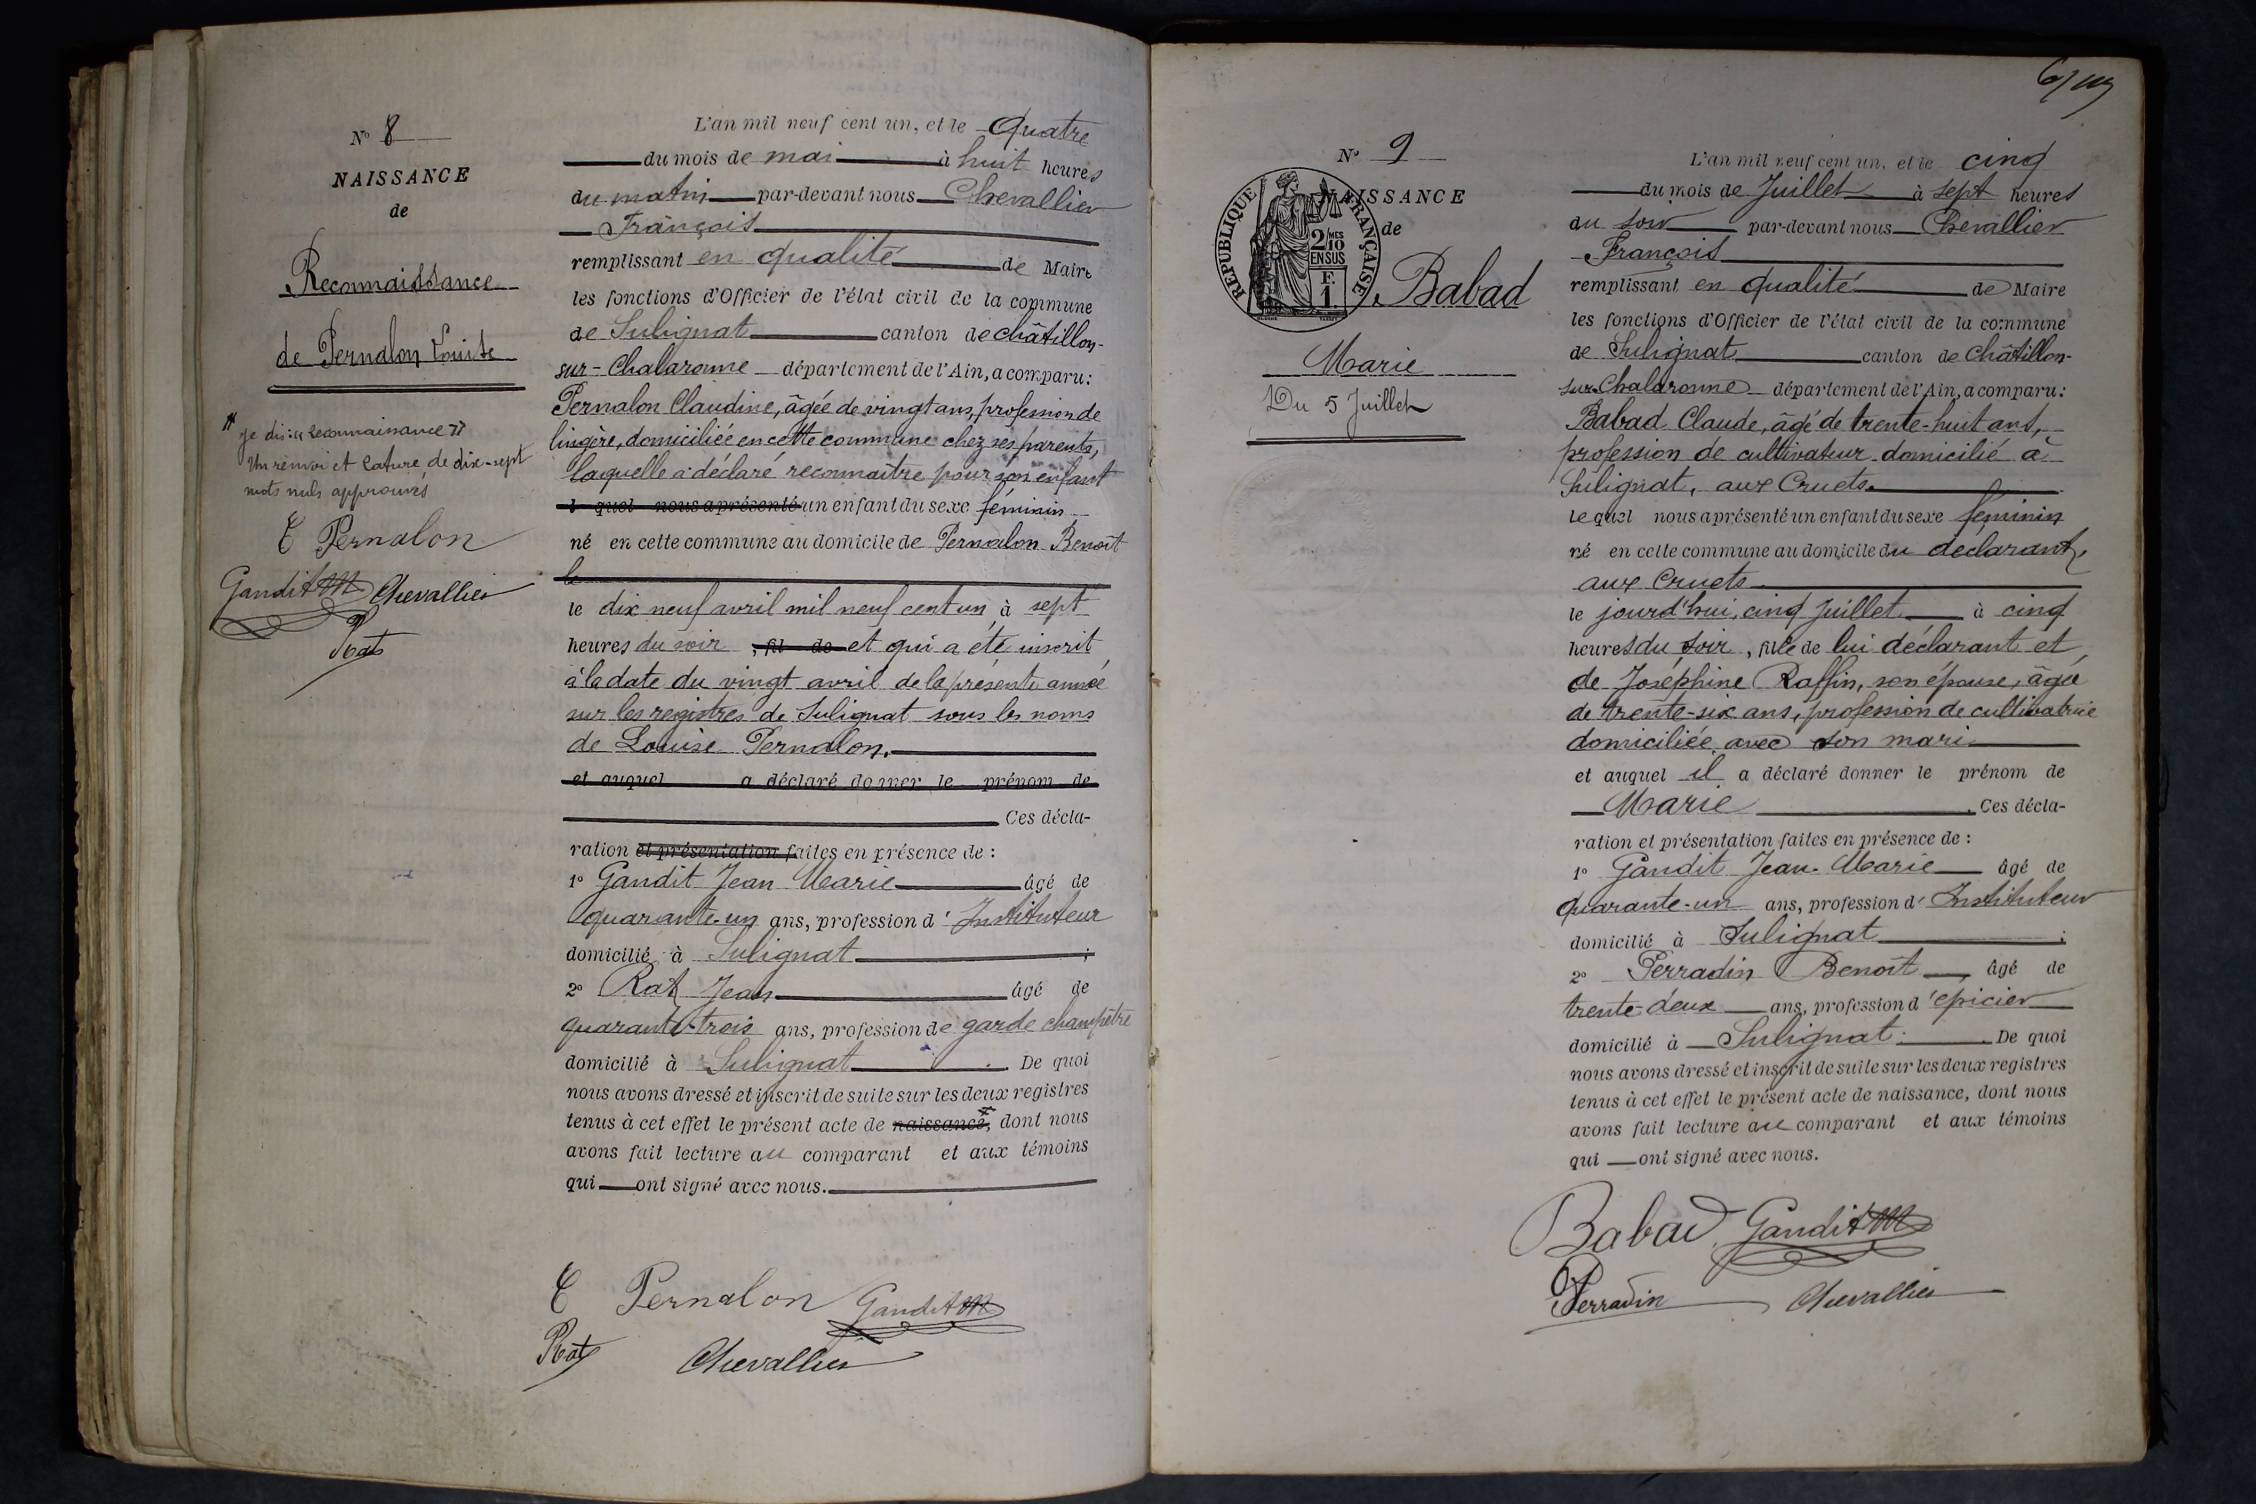 N° 8
NAISSANCE
de
Reconnaissance
de Pernalon Louise
je dis : « reconnaissance »
Un renvoi et rature de dix-sept
mots nuls approuvés
C Pernalon
Gandit JM Chevallier
Rat
L'an mil neuf cent un, et le quatre
du mois de mai à huit heures
du matin par-devant nous Chevallier
François
remplissant en qualité de Maire
les fonctions d'Officier de l'état civil de la commune
de Sulignat canton de Châtillon-
sur-Chalaronne département de l'Ain, a comparu :
Pernalon Claudine, âgée de vingt ans, profession de
lingère, domiciliée en cette commune chez ses parents,
laquelle a déclaré reconnaître pour son enfant
l quel nous a présenté un enfant du sexe féminin
né en cette commune au domicile de Pernalon Benoît
le
le dix neuf avril mil neuf cent un à sept
heures du soir , fil de et qui a été inscrit
à la date du vingt avril de la présente année
sur les registres de Sulignat sous les noms
de Louise Pernalon.
et auquel a déclaré donner le prénom de
Ces décla-
ration et présentation faites en présence de :
1° Gandit Jean Marie âgé de
quarante-un ans, profession d'Instituteur
domicilié à Sulignat ;
2° Rat Jean âgé de
quarante-trois ans, profession de garde champêtre
domicilié à Sulignat . De quoi
nous avons dressé et inscrit de suite sur les deux registres
tenus à cet effet le présent acte de naissance, dont nous
avons fait lecture au comparant et aux témoins
qui ont signé avec nous.
C Pernalon Gandit JM
Rat Chevallier
N° 9
NAISSANCE
de
RÉPUBLIQUE FRANÇAISE
2/10 MES
EN SUS
F.
1
Babad
Marie
Du 5 Juillet
L'an mil neuf cent un, et le cinq
du mois de Juillet à sept heures
du soir par-devant nous Chevallier
François
remplissant en qualité de Maire
les fonctions d'Officier de l'état civil de la commune
de Sulignat canton de Châtillon-
sur-Chalaronne département de l'Ain, a comparu :
Babad Claude, âgé de trente-huit ans,
profession de cultivateur domicilié à
Sulignat, aux Cruets.
lequel nous a présenté un enfant du sexe féminin
né en cette commune au domicile du déclarant,
aux Cruets
le jourd'hui, cinq Juillet à cinq
heures du soir, fille de lui déclarant et
de Joséphine Raffin, son épouse, âgée
de trente-six ans, profession de cultivatrice
domiciliée avec son mari
et auquel il a déclaré donner le prénom de
Marie . Ces décla-
ration et présentation faites en présence de :
1° Gandit Jean-Marie âgé de
quarante-un ans, profession d'Instituteur
domicilié à Sulignat ;
2° Perradin Benoît âgé de
trente-deux ans, profession d'épicier
domicilié à Sulignat . De quoi
nous avons dressé et inscrit de suite sur les deux registres
tenus à cet effet le présent acte de naissance, dont nous
avons fait lecture au comparant et aux témoins
qui ont signé avec nous.
Babad Gandit JM
Perradin Chevallier